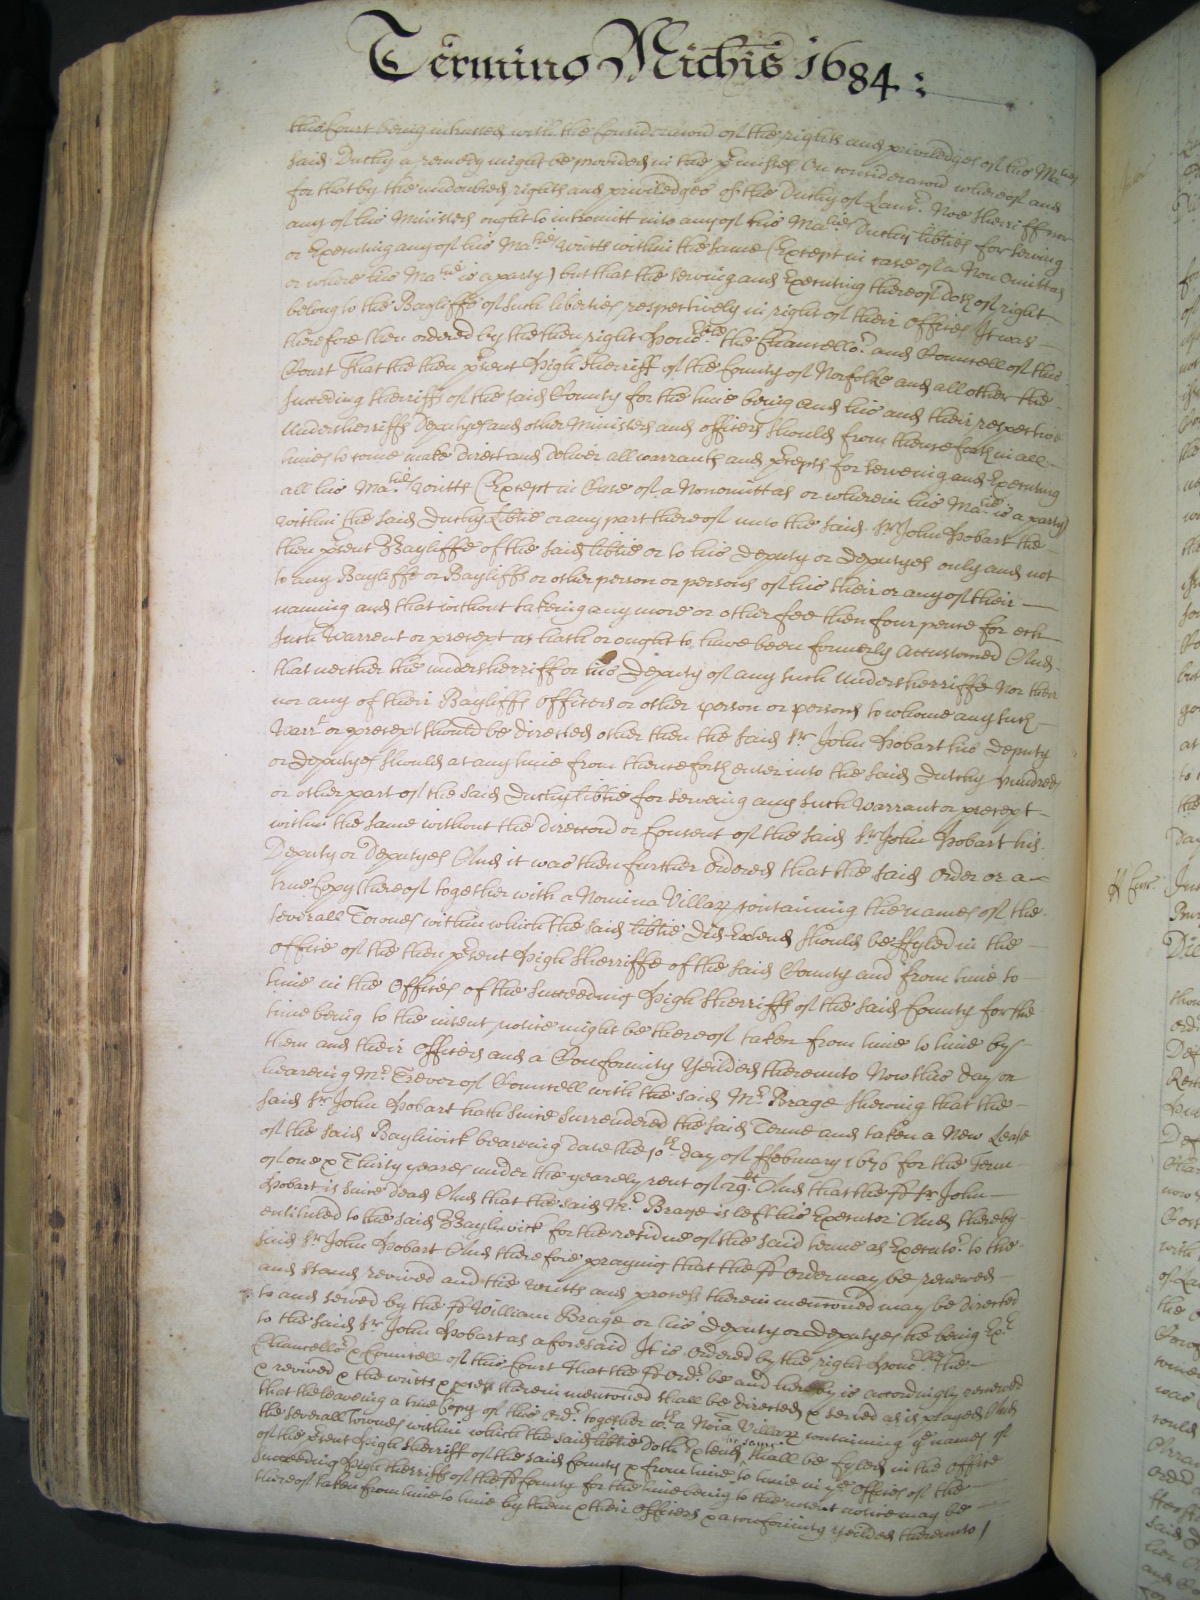 Termino Michis 1684:
this Court being intrusted with the Consideracion of the rights and priviledges of his Ma.ties
said Duchy a remedy might be provided in the p'misses On consideracion whereof and
for that by the undoubted rights and priviledges of the Duchy of Lanc.r Noe Sheriff nor
any of his Ministers ought to intromitt into any of his Ma.ties Duchy lib'ties for serving
or Executing any of his Ma.ties writts within the same (Except in case of a Non Omittas
or where his Ma.tie is a party) but that the serving and Executing thereof doth of right
belong to the Bayliffe of such liberties respectively in right of their offices It was
therefore then ordered by the then right Hono.ble the Chancello.r and Councell of this
Court That the then p'sent High Sherriff of the County of Norfolke and all other the
succeding Sherriffs of the said County for the time being and his and their respective
Undersherriffs Deputyes and other Ministers and officers should from thenceforth in all
times to come make Direct and deliver all warrants and p'cepts for serveing and Executing
all his Ma.ties writts (Except in Case of a Nonomittas or wherein his Ma.tie is a party)
within the said Duchy Lib'tie or any part thereof unto the said S.r John Hobart the
then p'sent Bayliffe of the said lib'tie or to his Deputy or Deputyes only and not
to any Bayliffe or Bayliffs or other person or persons of his their or any of their
naming and that without takeing any more or other fee then four pence for ech
such Warrent or precept as hath or ought to have been formerly accustomed And
that neither the undersherriff or his Deputy of any such Undersherriffe Nor their
nor any of their Bayliffs officers or other person or persons to whome any such
Warr.t or precept should be directed other then the said S.r John Hobart his Deputy
or Deputyes should at any time from thenceforth enter into the said Dutchy Hundred
or other part of the said Duchy lib'tie for serveing any such Warrant or precept
within the same without the direccion or Consent of the said S.r John Hobart his
Deputy or Deputyes And it was then further Ordered that the said order or a
true Copy thereof together with a Nomina Villar containing the names of the
severall Townes within which the said lib'tie did Extend should be ffyled in the
office of the then p'sent High Sherriffe of the said County and from time to
time in the Offices of the Succeeding High Sherriffs of the said County for the
time being to the intent notice might be thereof taken from time to time by
them and their Officers and a Conformity Yeilded thereunto Now this day on
heareing M.r Trevor of Councell with the said M.r Brage shewing that the
said S.r John Hobart hath since surrendered the said Terme and taken a New Lease
of the said Bayliwick beareing date the 10.th day of ffebruary 1676 for the Term
of one & Thirty yeares under the yearely rent of And that the s.d S.r John
Hobart is since dead And that the said M.r Brage is left his Executor And thereby
entituled to the said Bayliwick for the residue of the said terme as Executo.r to the
said S.r John Hobart And therefore praying that the s.d Order may be renewed
and stand revived and the writts and process therein menconed may be directed
to and served by the s.d William Brage or his Deputy or Deputyes he being Ex.r
to the said S.r John Hobart as aforesaid It is Ordered by the right Hono.ble the
Chancello.r & Councell of this Court That the s.d Ord.r be and hereby is accordingly renewed
& revived & the writts & p'cess therein menconed shall be directed & served as is prayed And
that the leaveing a true Copy of this Ord.r together w.th a Noi'a Villar containing y.e names of
the severall Townes within which the said lib'tie doth Extend the same shall be fyled in the Office
of the p'sent High Sherriff of the said County & from time to time in y.e Offices of the
Succeeding High Sherriffs of the s.d County for the time being to the intent notice may be
thereof taken from time to time by them & their Officers & a conformity yeilded thereunto /